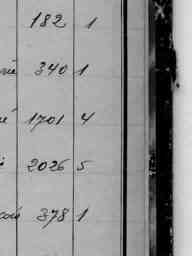 182 1
340 1
1701 4
2026 5
378 1